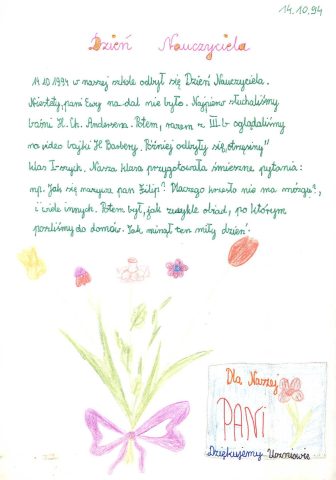 14.10.94
Dzień Nauczyciela
14.10.1994 w naszej szkole odbył się Dzień Nauczyciela.
Niestety, pani Ewy na dal nie było. Najpierw słuchaliśmy
baśni H. Ch. Andersena. Potem, razem z III b oglądaliśmy
na video bajki H. Barbery. Później odbyły się „otrzęsiny”
klas I-szych. Nasza klasa przygotowała śmieszne pytania:
np. Jak się nazywa pan Filip? Dlaczego krzesło nie ma mózgu?,
i wiele innych. Potem był, jak zwykle obiad, po którym
poszliśmy do domów. Jak minął ten miły dzień.
Dla Naszej
PANI
Dziękujemy Uczniowie